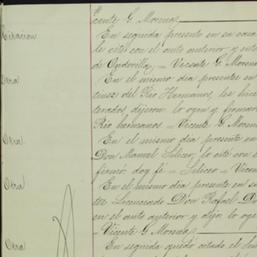 Vicente G. Moreno
Citacion
En seguida presente en su
le cité con el auto anterior y
de Ondovilla, = Vicente G. Moreno
Otra
En el mismo dia presentes en
del Rio Hermanos, les
terados, dijeron lo oyen y firmaron
Rio hermanos = Vicente G. Moreno
Otra
En el mismo dia presente en
Don Manuel Silicer, lo cité con
firmó doy fe = Silicer = Vicen
Otra
En el mismo dia presente en su
Licenciado Don Rafael
en el auto anterior y dijo lo oye
Vicente G. Moreno
Otra
En seguida quedó citado el